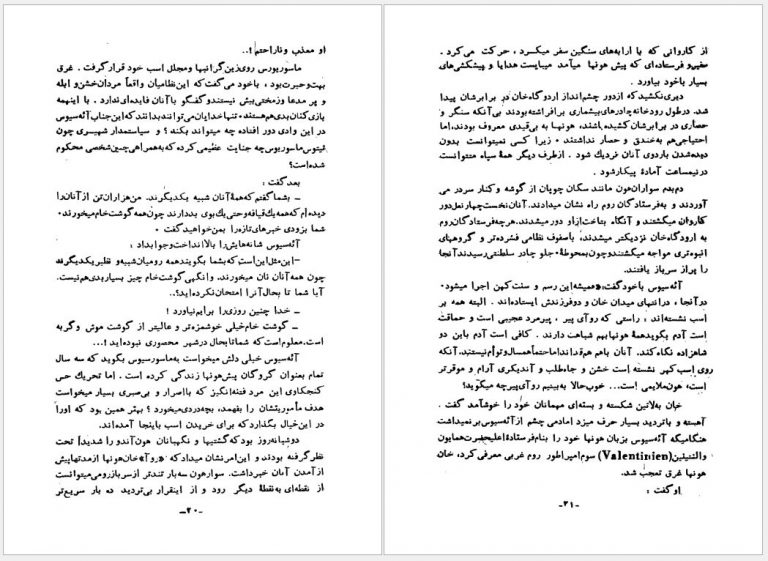 او معذب و ناراحتم !..
ماسوریورس روی‌زین گرانبها ومجلل اسب خود قرار گرفت . غرق
بهت وحیرت بود ، باخود می‌گفت که‌این نظامیان واقعاً مردان‌خشن‌و ابله
و پر مدعا وزمختی‌بیش نیستندوگفتگو باآنان فایده‌ای ندارد . با اینهمه
بازی‌کنان بدی‌هم‌هستند، تنهاخدایان‌می‌توانند بدانند که‌این‌جناب آئه‌سیوس
در این وادی دور افتاده چه میتواند بکند ؟ و سیاستمدار شهیری چون
تیتوس ماسوریوس‌چه جنایت عظیمی کرده که به‌همراهی‌چنین‌شخصی محکوم
شده‌است؟
بعد گفت :
ـ بشما گفتم که‌همهٔ‌آنان شبیه یکدیگرند. من‌هزاران‌تن ازآنان‌را
دیده‌ام که‌همه یك‌قیافه‌وحتی‌یك‌بوی بددارند چون‌همه گوشت‌خام‌میخورند.
شما بزودی خبرهای‌تازه‌را بمن‌خواهیدگفت .
آئه‌سیوس شانه‌هایش‌را بالاانداخت‌وجوابداد :
ـ این‌مثل‌این‌است‌که‌بشما بگویندهمه رومیان‌شبیه‌و نظیر‌یکدیگرند
چون همه‌آنان نان میخورند. وانگهی‌گوشت‌خام چیز بسیاربدی‌هم‌نیست.
آیا شما تا بحال آنرا امتحان‌نکرده‌اید؟..
ـ خدا چنین روزی‌را برایم‌نیاورد !
ـ گوشت خام‌خیلی خوشمزه‌تر و عالیتر از گوشت موش وگربه
است. معلوم‌است که شماتابحال درشهر محصوری نبوده‌اید !...
آئه‌سیوس خیلی دلش میخواست به‌ماسورسیوس بگوید که سه سال
تمام بعنوان گروگان پیش‌هونها زندگی کرده است . اما تحریك حس
کنجکاوی این مرد فتنه‌انگیز که بااصرار و بی‌صبری بسیار میخواست
هدف مأموریتشان را بفهمد، بچه‌دردی‌میخورد ؟ بهتر همین بود که اورا
در این‌خیال بگذارد‌که برای خریدن اسب باینجا آمده‌اند.
دوشبانه‌روز بود که‌گشتیها و نگهبانان هون‌آندو را شدیداً تحت
نظرگرفته بودند و این‌امر‌نشان میداد‌که «روآ»خان‌هونها ازمدتهاپیش
از‌آمدن آنان خبرداشت. سوار‌هون سه‌بار تندتر از‌سرباز‌رومی‌میتوانست
از نقطه‌ای به‌نقطهٔ دیگر رود و از اینقرار بی‌تردید ده بار سریع‌تر
ـ۲۰ـ
از کاروانی که با ارابه‌های سنگین سفر میکرد ، حرکت می‌کرد .
سفیرو فرستاده‌ای که پیش هونها میآمد میبایست هدایا و پیشکشی‌های
بسیار باخود بیاورد .
دیری‌نکشید‌که ازدور چشم‌انداز اردوگاه‌خان در برابرشان پیدا
شد. درطول رودخانه چادرهای‌بیشماری بر‌افراشته‌بودند بی‌آنکه سنگر و
حصاری در برابرشان کشیده‌باشند، هونها به بی‌قیدی معروف بودند، اما
احتیاجی‌هم به‌خندق و حصار نداشتند . زیرا کسی نمیتوانست بدون
دیده‌شدن باردوی آنان نزدیك شود . از‌طرف دیگر همهٔ سپاه میتوانست
درنیمساعت آمادهٔ پیکارشود .
دم‌بدم سواران‌هون مانند سگان چوپان از گوشه و کنار سردر می
آوردند و به‌فرستادگان روم راه نشان میدادند. آنان‌نخست‌چهارنعل‌دور
کاروان میگشتند و آنگاه بتاخت‌از‌او دور‌میشدند. هرچه‌فرستادگان‌روم
به اردوگاه‌خان نزدیکتر میشدند، باصفوف نظامی فشرده‌تر و گروههای
انبوه‌تری مواجه میگشتند‌و‌چون‌بمحوطهٔ جلو چادر سلطنتی‌رسیدندآنجا
را پراز سرباز یافتند.
آئه‌سیوس باخودگفت: «همیشه‌این رسم و سنت کهن اجرا میشود.
در‌آنجا ، درانتهای میدان خان و دوفرزندش ایستاده‌اند . البته همه بر
اسب نشسته‌اند ، راستی که روآی پیر ، پیرمرد عجیبی است و حماقت
است آدم بگوید‌همهٔ هونها‌بهم شباهت دارند . کافی است آدم باین دو
شاهزاده نگاه‌کند. آنان باهم هم‌قد‌اند‌اما‌حتماً‌همسال‌و توأم‌نیستند، آنکه
روی اسب‌کهر نشسته است خشن و جاه‌طلب و آندیگری آرام و موقرتر
است، هون‌ملایمی است... خوب‌حالا به‌بینیم روآی‌پیرچه میگوید؟
خان به‌لاتین شکسته و بسته‌ای مهمانان خود را خوشآمد گفت .
آهسته و باتردید بسیار حرف میزد امادمی چشم از‌آئه‌سیوس برنمیداشت
هنگامیکه آئه‌سیوس بزبان هونها خود را بنام فرستادهٔ اعلیحضرت‌همایون
والنتینین(Valentinien) سوم‌امپراطور روم غربی معرفی‌کرد، خان
هونها غرق تعجب شد.
او گفت :
ـ۲۱ـ